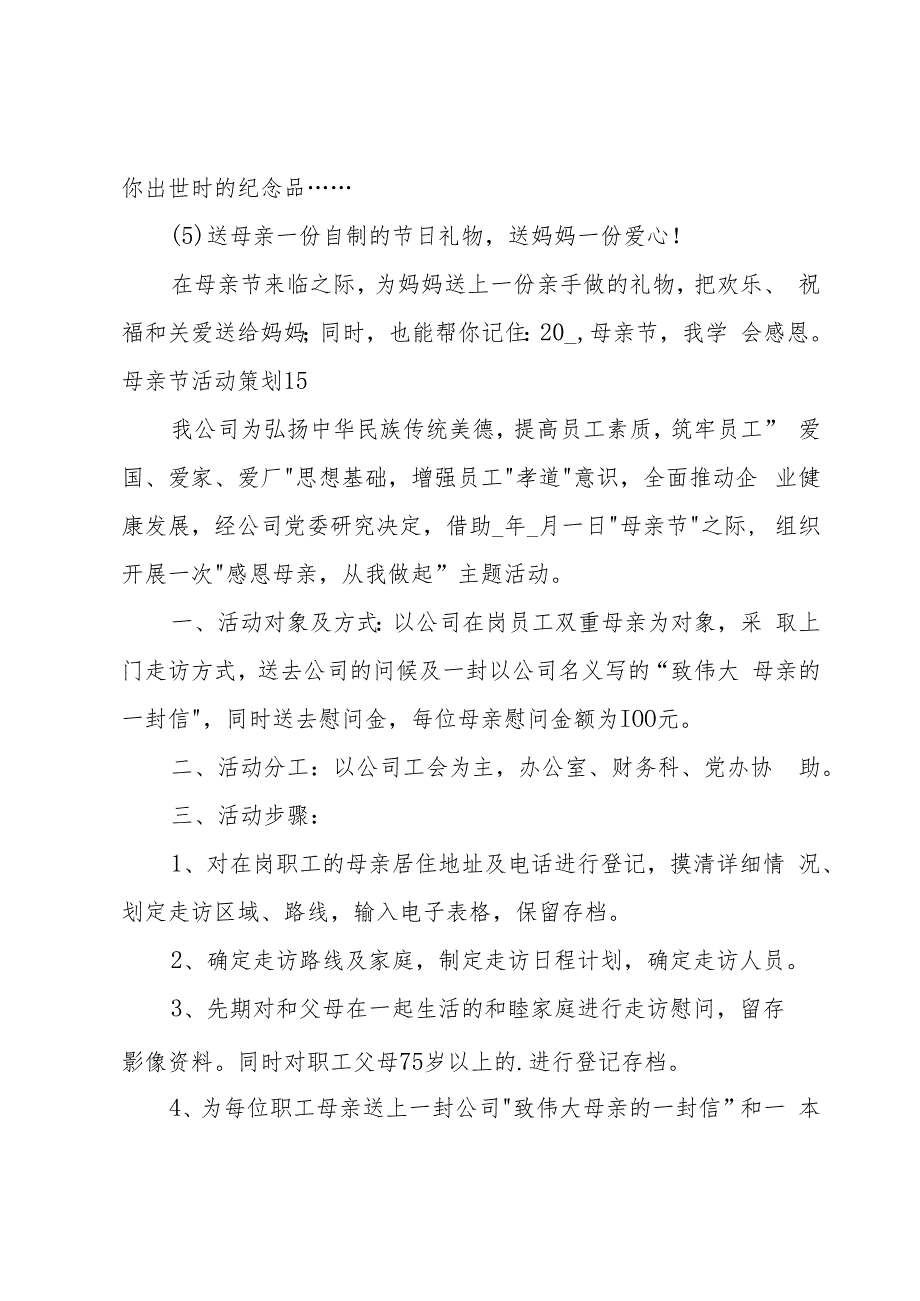 你出世时的纪念品……
(5)送母亲一份自制的节日礼物，送妈妈一份爱心！
在母亲节来临之际，为妈妈送上一份亲手做的礼物，把欢乐、 祝
福和关爱送给妈妈；同时，也能帮你记住：20_,母亲节，我学 会感恩。
母亲节活动策划15
我公司为弘扬中华民族传统美德，提高员工素质，筑牢员工” 爱
国、爱家、爱厂"思想基础，增强员工"孝道"意识，全面推动企 业健
康发展，经公司党委研究决定，借助_年_月一日"母亲节"之际, 组织
开展一次"感恩母亲，从我做起”主题活动。
一、活动对象及方式：以公司在岗员工双重母亲为对象，采 取上
门走访方式，送去公司的问候及一封以公司名义写的“致伟大 母亲的
一封信"，同时送去慰问金，每位母亲慰问金额为IOO元。
二、活动分工：以公司工会为主，办公室、财务科、党办协 助。
三、活动步骤：
1、对在岗职工的母亲居住地址及电话进行登记，摸清详细情 况、
划定走访区域、路线，输入电子表格，保留存档。
2、确定走访路线及家庭，制定走访日程计划，确定走访人员。
3、先期对和父母在一起生活的和睦家庭进行走访慰问，留存
影像资料。同时对职工父母75岁以上的.进行登记存档。
4、为每位职工母亲送上一封公司"致伟大母亲的一封信”和一 本